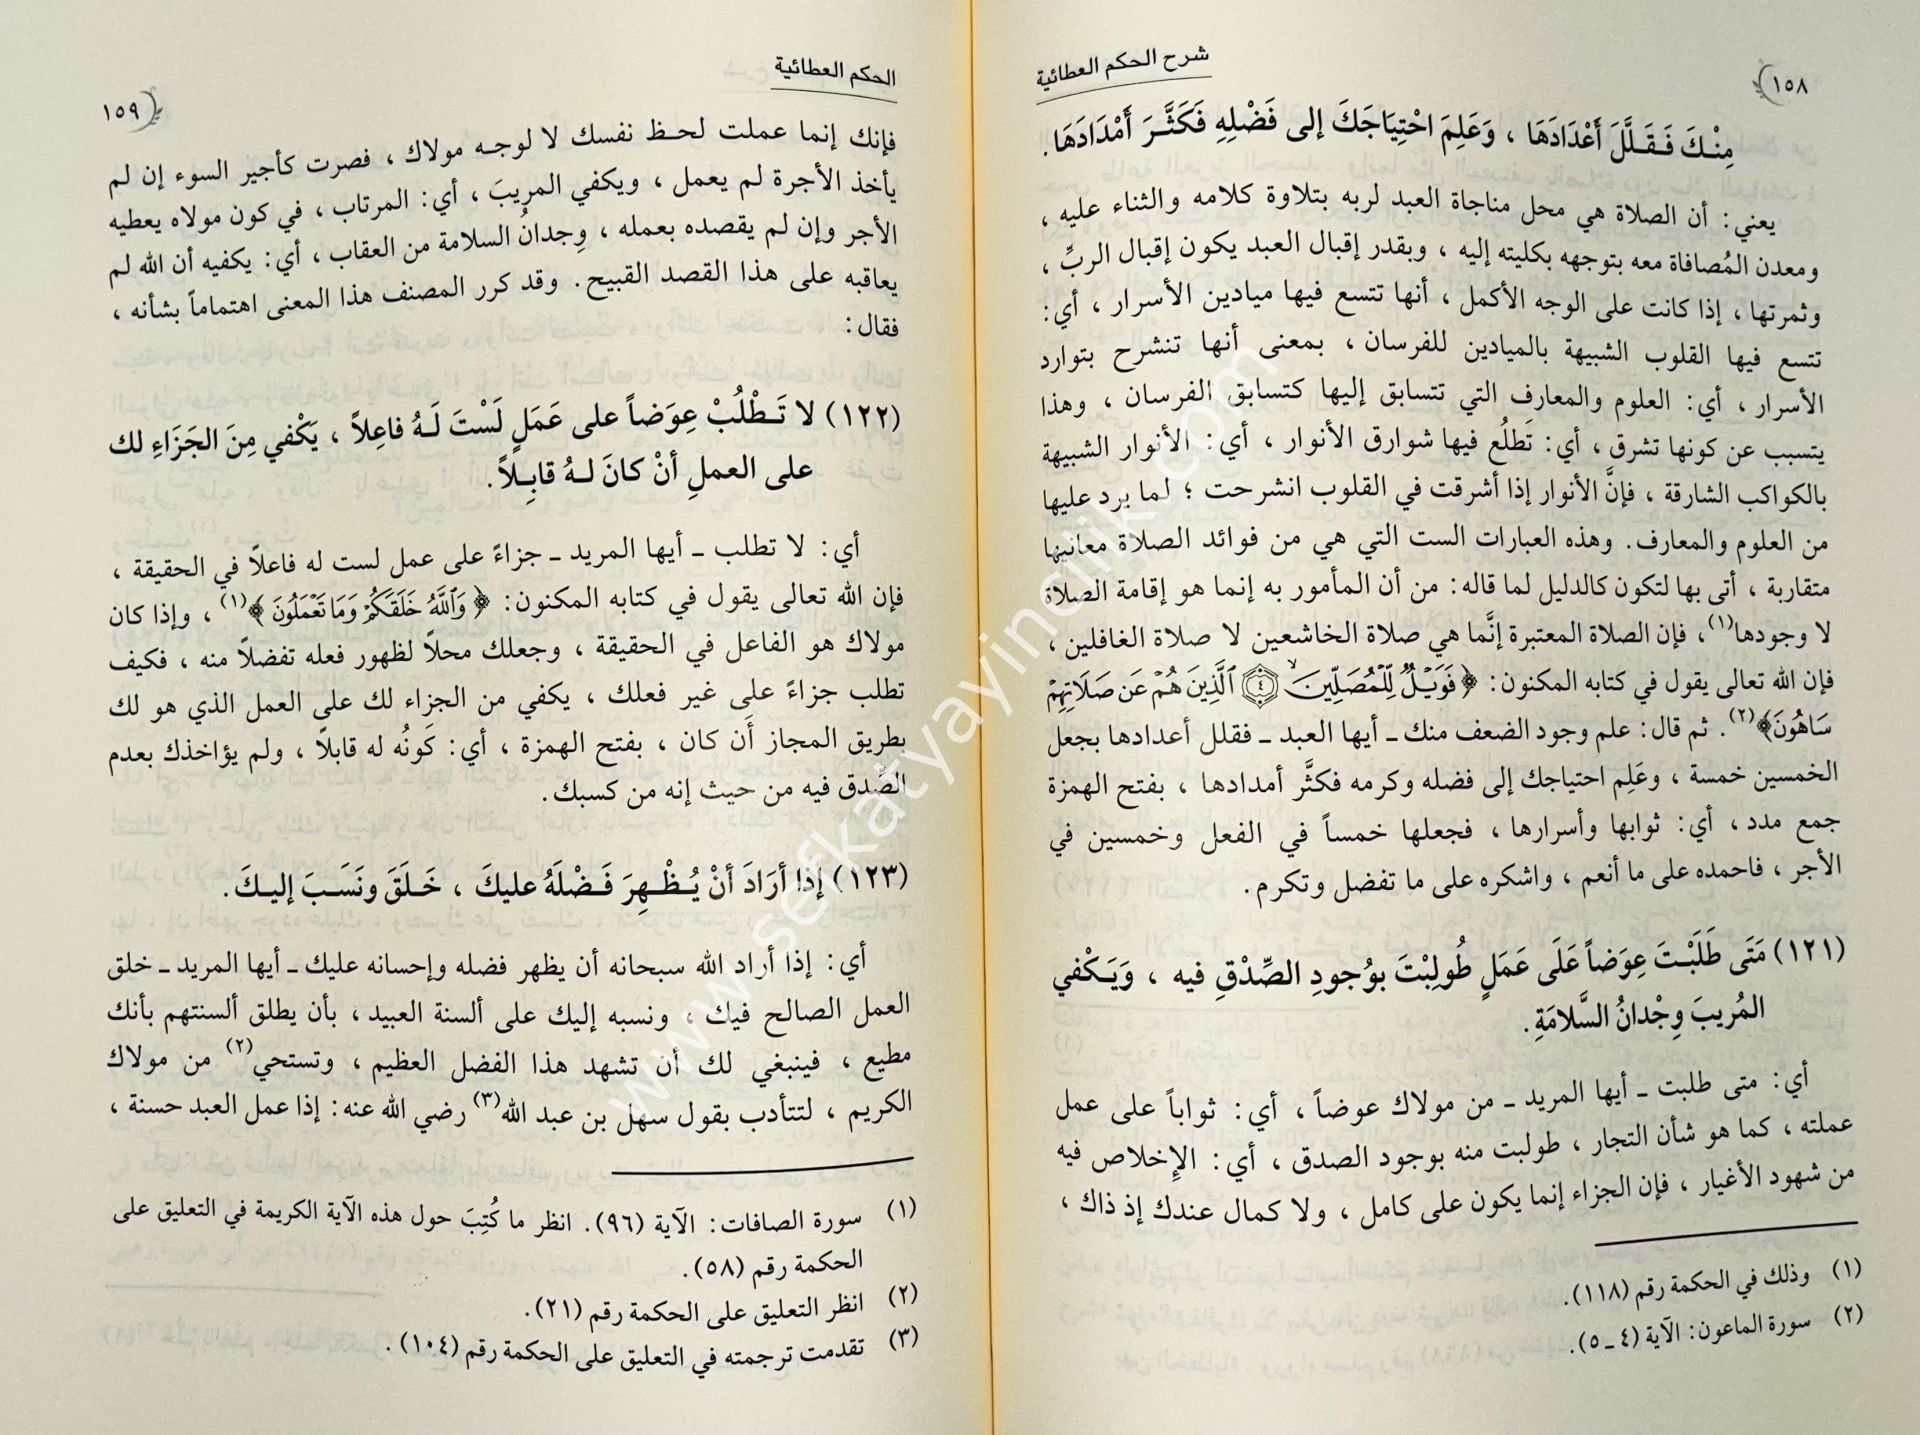 ١٥٨
شرح الحكم العطائية
مِنْكَ فَقَلَّلَ أَعْدَادَهَا ، وَعَلِمَ احْتِيَاجَكَ إلى فَضْلِهِ فَكَثَّرَ أَمْدَادَهَا .
يعني : أن الصلاة هي محل مناجاة العبد لربه بتلاوة كلامه والثناء عليه ،
ومعدن المُصافاة معه بتوجهه بكليته إليه ، وبقدر إقبال العبد يكون إقبال الربِّ ،
وثمرتها ، إذا كانت على الوجه الأكمل ، أنها تتسع فيها ميادين الأسرار ، أي :
تتسع فيها القلوب الشبيهة بالميادين للفرسان ، بمعنى أنها تنشرح بتوارد
الأسرار ، أي : العلوم والمعارف التي تتسابق إليها كتسابق الفرسان ، وهذا
يتسبب عن كونها تشرق ، أي : تَطلُع فيها شوارق الأنوار ، أي : الأنوار الشبيهة
بالكواكب الشارقة ، فإنَّ الأنوار إذا أشرقت في القلوب انشرحت ؛ لما يرد عليها
من العلوم والمعارف . وهذه العبارات الست التي هي من فوائد الصلاة معانيها
متقاربة ، أتى بها لتكون كالدليل لما قاله : من أن المأمور به إنما هو إقامة الصلاة
لا وجودها(١) ، فإن الصلاة المعتبرة إنَّما هي صلاة الخاشعين لا صلاة الغافلين ،
فإن الله تعالى يقول في كتابه المكنون : ﴿فَوَيْلٌ لِّلْمُصَلِّينَ ۙ ٤ ٱلَّذِينَ هُمْ عَن صَلَاتِهِمْ
سَاهُونَ﴾(٢) . ثم قال : علم وجود الضعف منك ـ أيها العبد ـ فقلل أعدادها بجعل
الخمسين خمسة ، وعَلِم احتياجك إلى فضله وكرمه فكثَّر أمدادها ، بفتح الهمزة
جمع مدد ، أي : ثوابها وأسرارها ، فجعلها خمساً في الفعل وخمسين في
الأجر ، فاحمده على ما أنعم ، واشكره على ما تفضل وتكرم .
(١٢١) مَتَى طَلَبْتَ عِوَضاً عَلَى عَمَلٍ طُولِبْتَ بوُجودِ الصِّدْقِ فيه ، وَيَكْفي
المُريبَ وِجْدانُ السَّلامَةِ .
أي : متى طلبت ـ أيها المريد ـ من مولاك عوضاً ، أي : ثواباً على عمل
عملته ، كما هو شأن التجار ، طولبت منه بوجود الصدق ، أي : الإخلاص فيه
من شهود الأغيار ، فإن الجزاء إنما يكون على كامل ، ولا كمال عندك إذ ذاك ،
(١) وذلك في الحكمة رقم (١١٨) .
(٢) سورة الماعون : الآية (٤ ـ ٥) .
الحكم العطائية
١٥٩
فإنك إنما عملت لحظ نفسك لا لوجه مولاك ، فصرت كأجير السوء إن لم
يأخذ الأجرة لم يعمل ، ويكفي المريبَ ، أي : المرتاب ، في كون مولاه يعطيه
الأجر وإن لم يقصده بعمله ، وِجدانُ السلامة من العقاب ، أي : يكفيه أن الله لم
يعاقبه على هذا القصد القبيح . وقد كرر المصنف هذا المعنى اهتماماً بشأنه ،
فقال :
(١٢٢) لا تَطْلُبْ عِوَضاً على عَمَلٍ لَسْتَ لَهُ فاعِلاً ، يَكْفي مِنَ الجَزَاءِ لك
على العملِ أنْ كانَ لهُ قابِلاً .
أي : لا تطلب ـ أيها المريد ـ جزاءً على عمل لست له فاعلاً في الحقيقة ،
فإن الله تعالى يقول في كتابه المكنون : ﴿وَٱللَّهُ خَلَقَكُمْ وَمَا تَعْمَلُونَ﴾(١) ، وإذا كان
مولاك هو الفاعل في الحقيقة ، وجعلك محلاً لظهور فعله تفضلاً منه ، فكيف
تطلب جزاءً على غير فعلك ، يكفي من الجزاء لك على العمل الذي هو لك
بطريق المجاز أَن كان ، بفتح الهمزة ، أي : كَونُه له قابلاً ، ولم يؤاخذك بعدم
الصِّدق فيه من حيث إنه من كسبك .
(١٢٣) إذا أرَادَ أنْ يُظْهِرَ فَضْلَهُ عليكَ ، خَلَقَ ونَسَبَ إليكَ .
أي : إذا أراد الله سبحانه أن يظهر فضله وإحسانه عليك ـ أيها المريد ـ خلق
العمل الصالح فيك ، ونسبه إليك على ألسنة العبيد ، بأن يطلق ألسنتهم بأنك
مطيع ، فينبغي لك أن تشهد هذا الفضل العظيم ، وتستحي(٢) من مولاك
الكريم ، لتتأدب بقول سهل بن عبد الله(٣) رضي الله عنه : إذا عمل العبد حسنة ،
(١) سورة الصافات : الآية (٩٦) . انظر ما كُتِبَ حول هذه الآية الكريمة في التعليق على
الحكمة رقم (٥٨) .
(٢) انظر التعليق على الحكمة رقم (٢١) .
(٣) تقدمت ترجمته في التعليق على الحكمة رقم (١٠٤) .
www.sefkatyayincilik.com